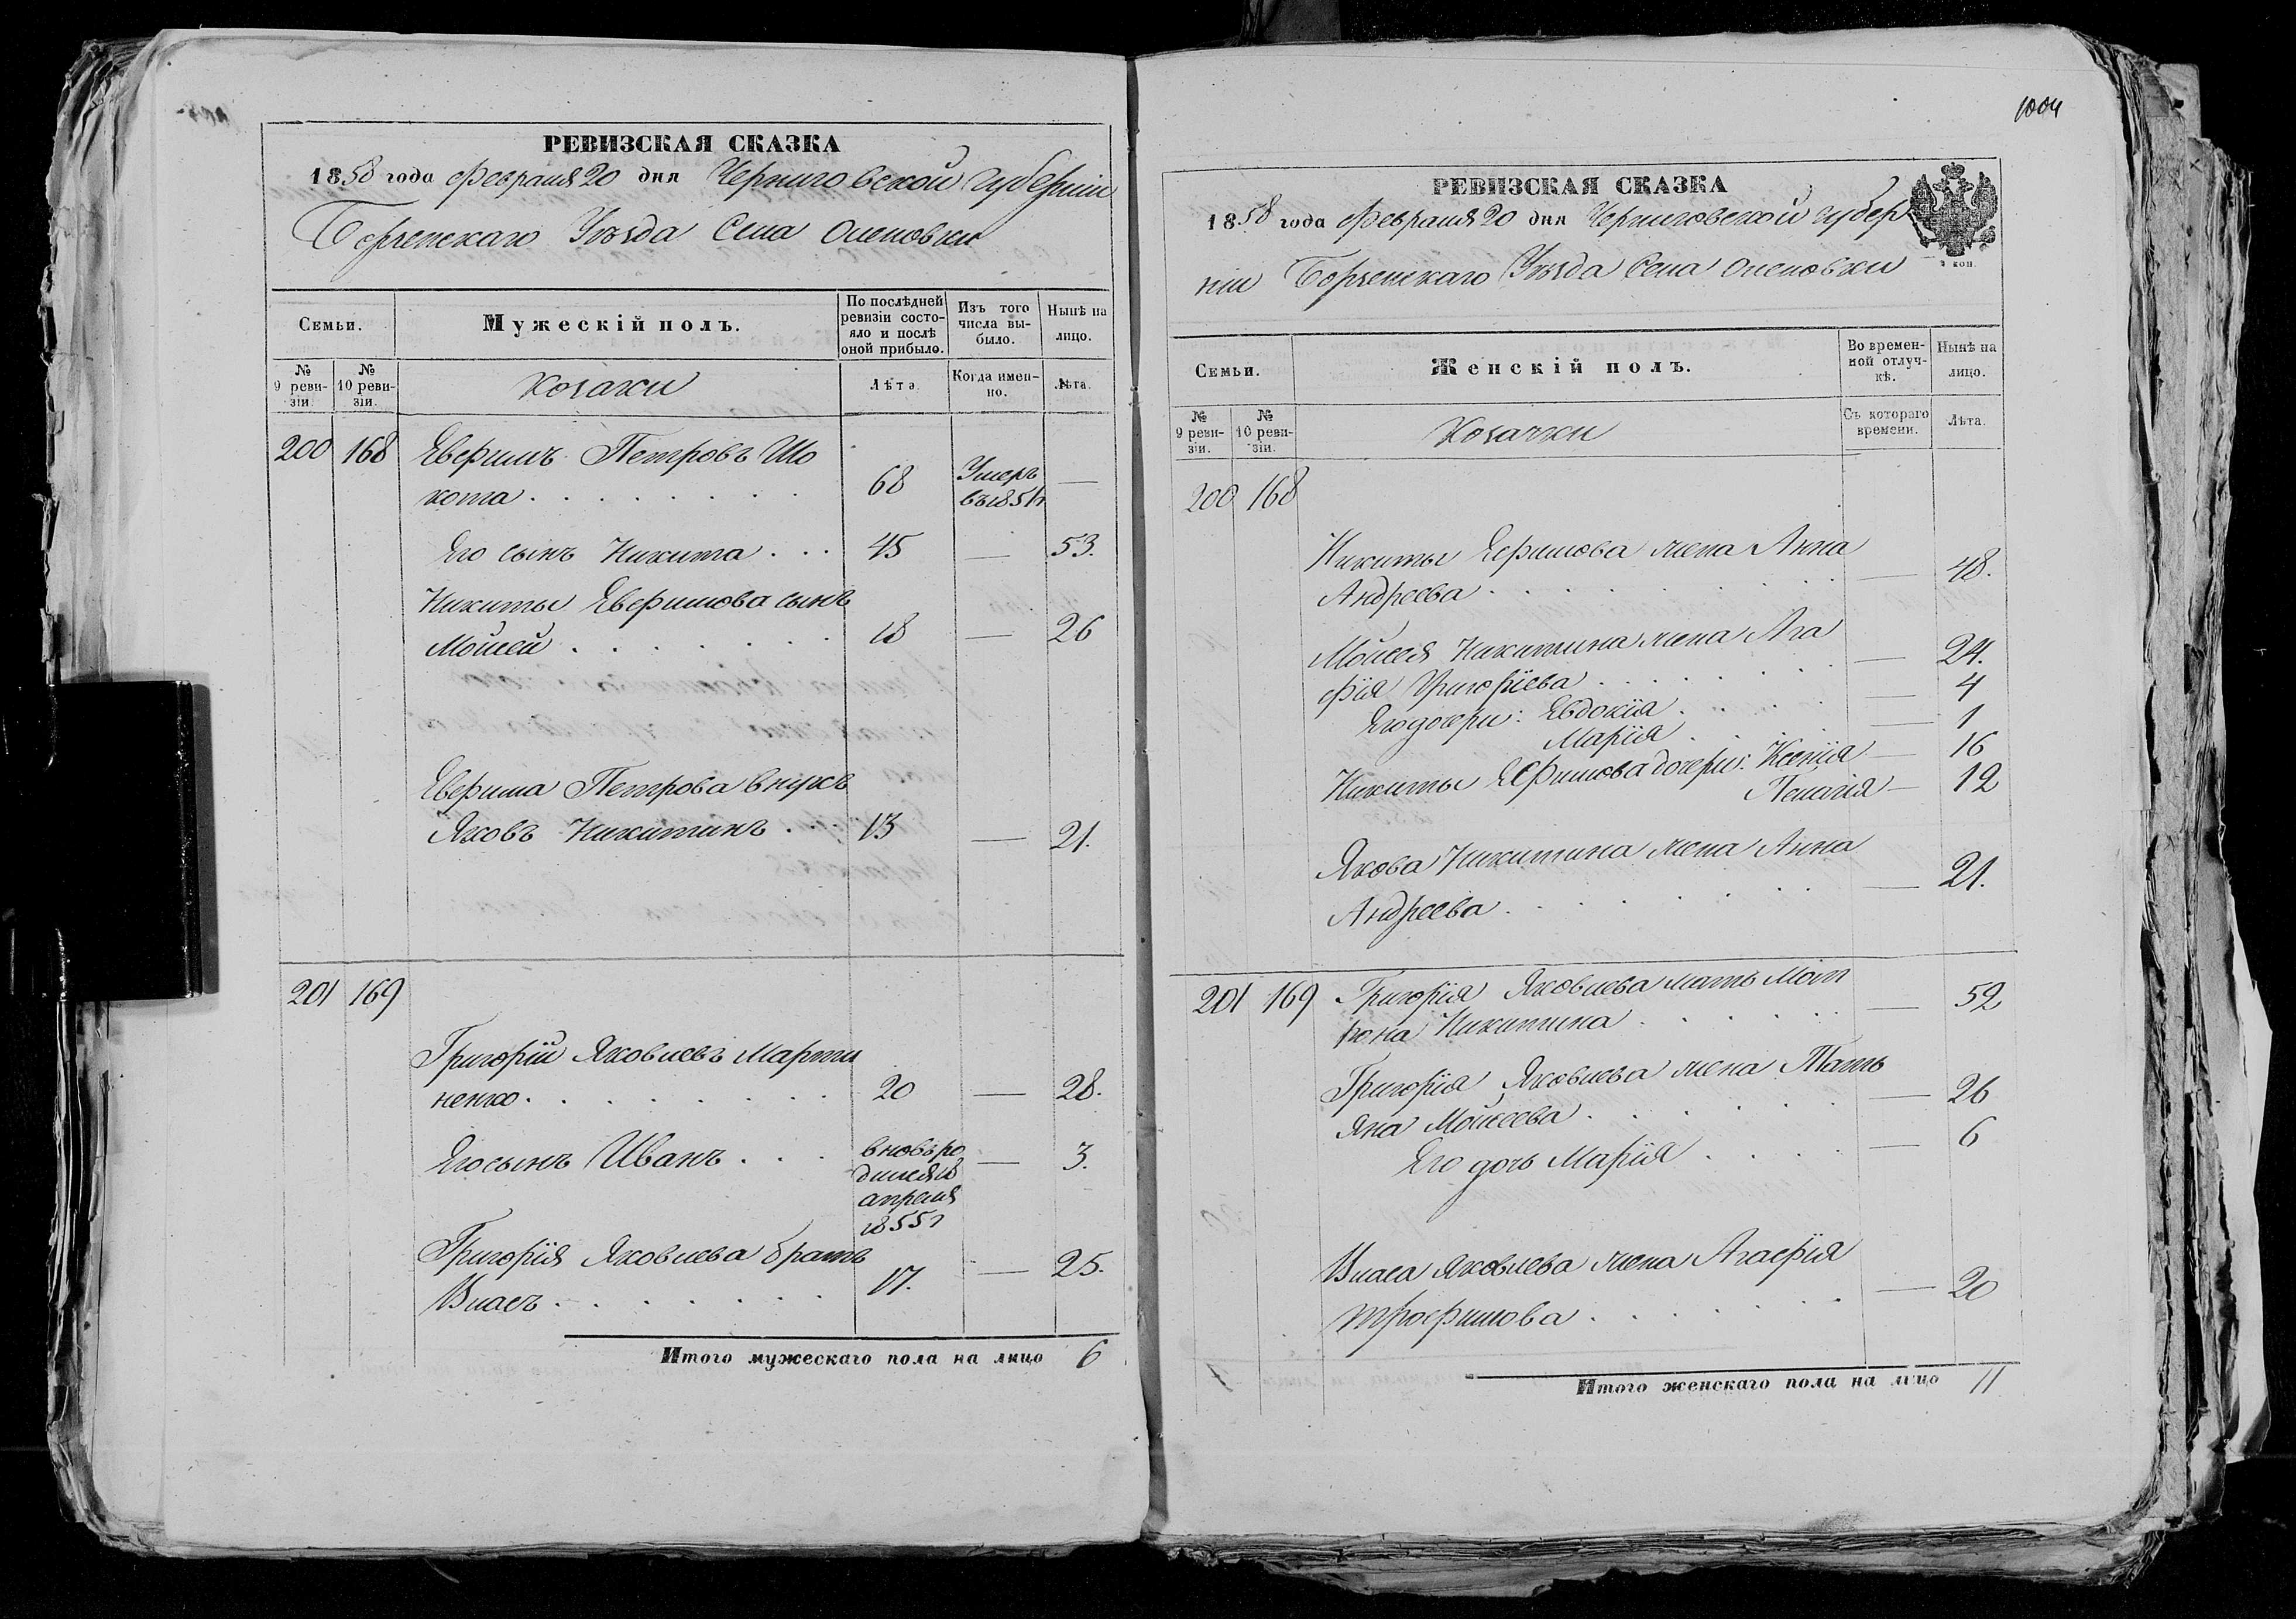 РЕВИЗСКАЯ СКАЗКА
1858 года Февраля 20 дня Черниговской Губерніи
Борзенскаго Уѣзда Села Оленовки
Семьи.
Мужескій полъ.
По послѣдней ревизіи состояло и послѣ оной прибыло.
Изъ того числа выбыло.
Нынѣ на лицо.
№ 9 ревизіи.
№ 10 ревизіи.
Козаки
Лѣта.
Когда именно.
Лѣта.
200 168 Евфимъ Петровъ Шо
кота 68 Умеръ въ 1854 —
Его сынъ Никита 45 — 53.
Никиты Евфимова сынъ
Мойсей 18 — 26
Евфима Петрова внукъ
Яковъ Никитинъ 13 — 21.
201 169
Григорій Яковлевъ Марти
ненко 20 — 28.
Его сынъ Иванъ вновь ро — 3.
дился 18
апреля
1855 г
Григорія Яковлева братъ
Власъ 17. — 25.
Итого мужескаго пола на лицо 6
1004
РЕВИЗСКАЯ СКАЗКА
1858 года Февраля 20 дня Черниговской губер
ніи Борзенскаго Уѣзда Села Оленовки
Семьи.
Женскій полъ.
Во временной отлучкѣ.
Нынѣ на лицо.
№ 9 ревизіи.
№ 10 ревизіи.
Козачки
Съ котораго времени.
Лѣта.
200 168
Никиты Ефимова жена Анна
Андреева — 48.
Мойсея Никитина жена Ага
фія Григоріева — 24.
Его дочери: Евдокія — 4
Марія — 1
Никиты Ефимова дочери: Ксенія — 16
Пелагія — 12
Якова Никитина жена Анна
Андреева — 21.
201 169 Григорія Яковлева мать Мот
рона Никитина — 52
Григорія Яковлева жена Тать
яна Мойсеева — 26
Его дочь Марія — 6
Власа Яковлева жена Агафія
Трофимова — 20
Итого женскаго пола на лицо 11